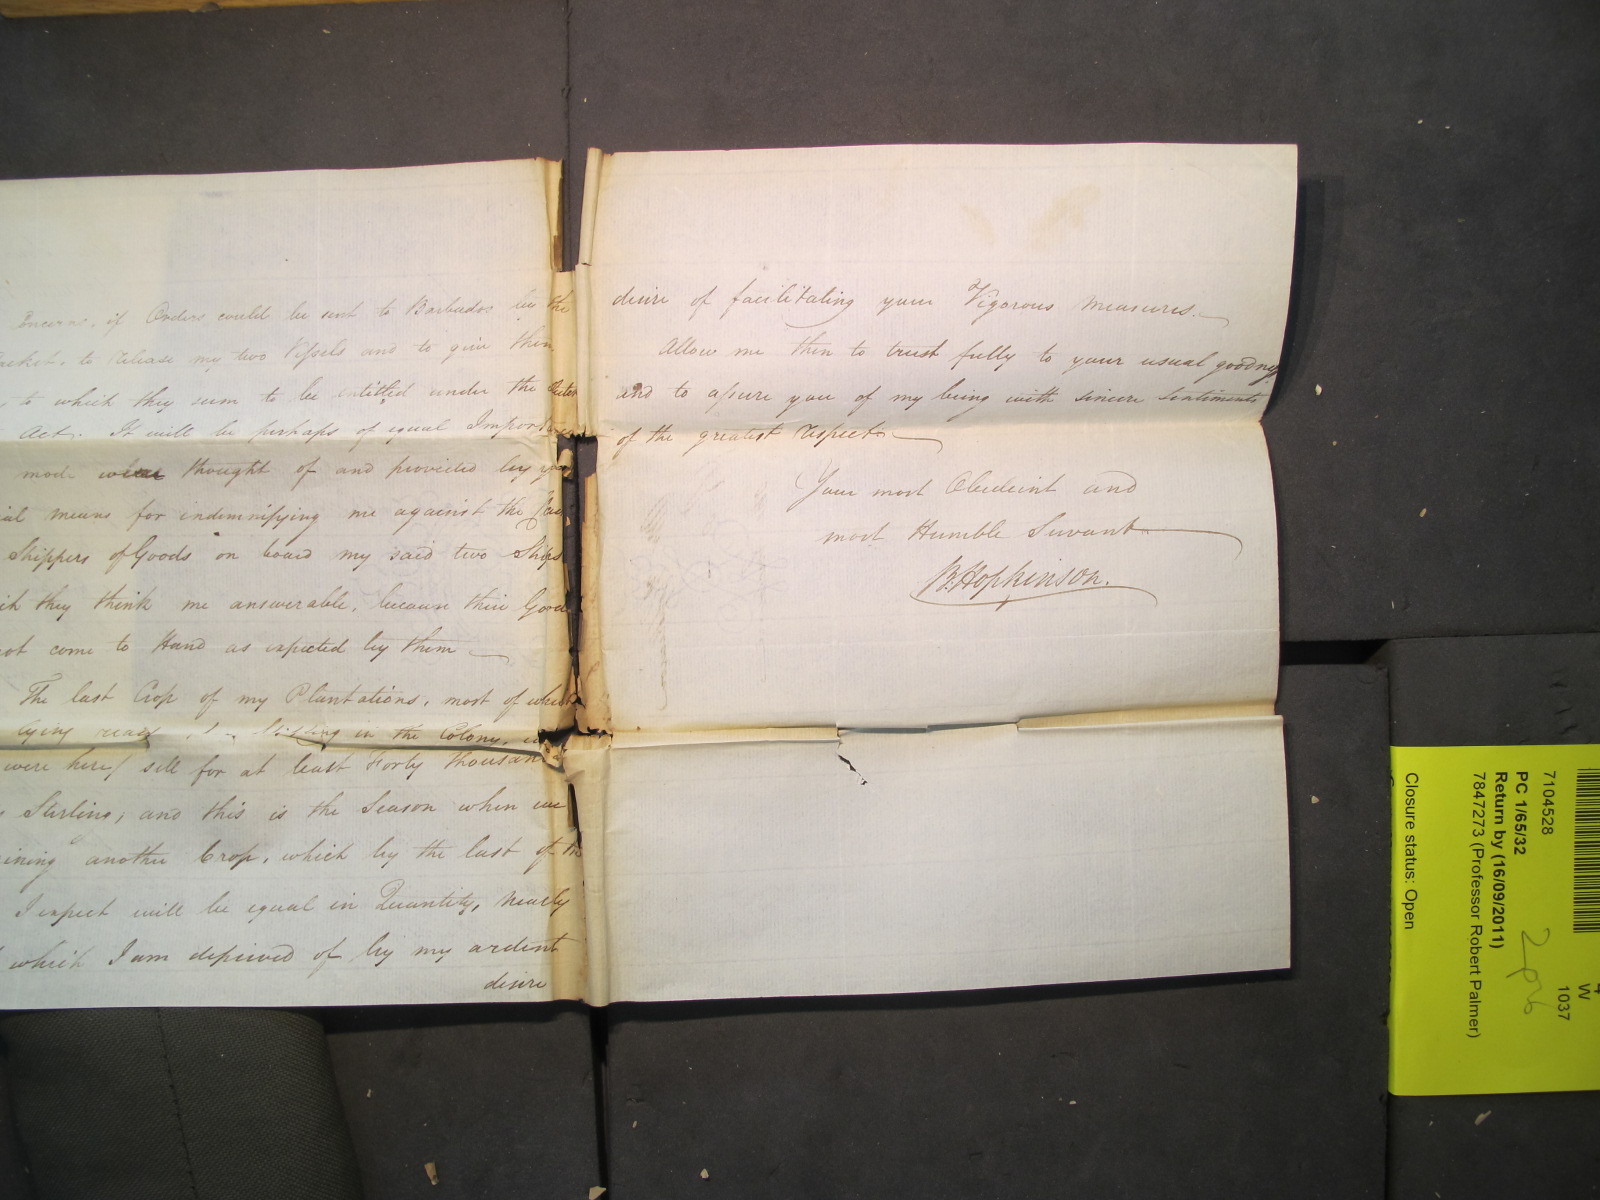 Concerns, if Orders could be sent to Barbados by the
to release my two Vessels and to give them
to which they seem to be entitled under the
Act. It will be perhaps of equal
mode thought of and provided by
means for indemnifying me against the
Shippers of Goods on board my said two Ships
they think me answerable, because their Goods
not come to Hand as expected by them
The last Crop of my Plantations, most of which
lying ready in the Colony,
were here/ sell for at least Forty thousand
Sterling, and this is the Season when we
another Crop, which by the last of the
I expect will be equal in Quantity, nearly
which I am deprived of by my ardent
desire
desire of facilitating your Vigorous measures.
Allow me then to trust fully to your usual goodness
and to assure you of my being with sincere Sentiments
of the greatest respect
Your most Obedeint and
most Humble Servant
B. Hopkinson.
7104528
PC 1/65/32
Return by (16/09/2011)
7847273 (Professor Robert Palmer)
Closure status: Open
W
1037